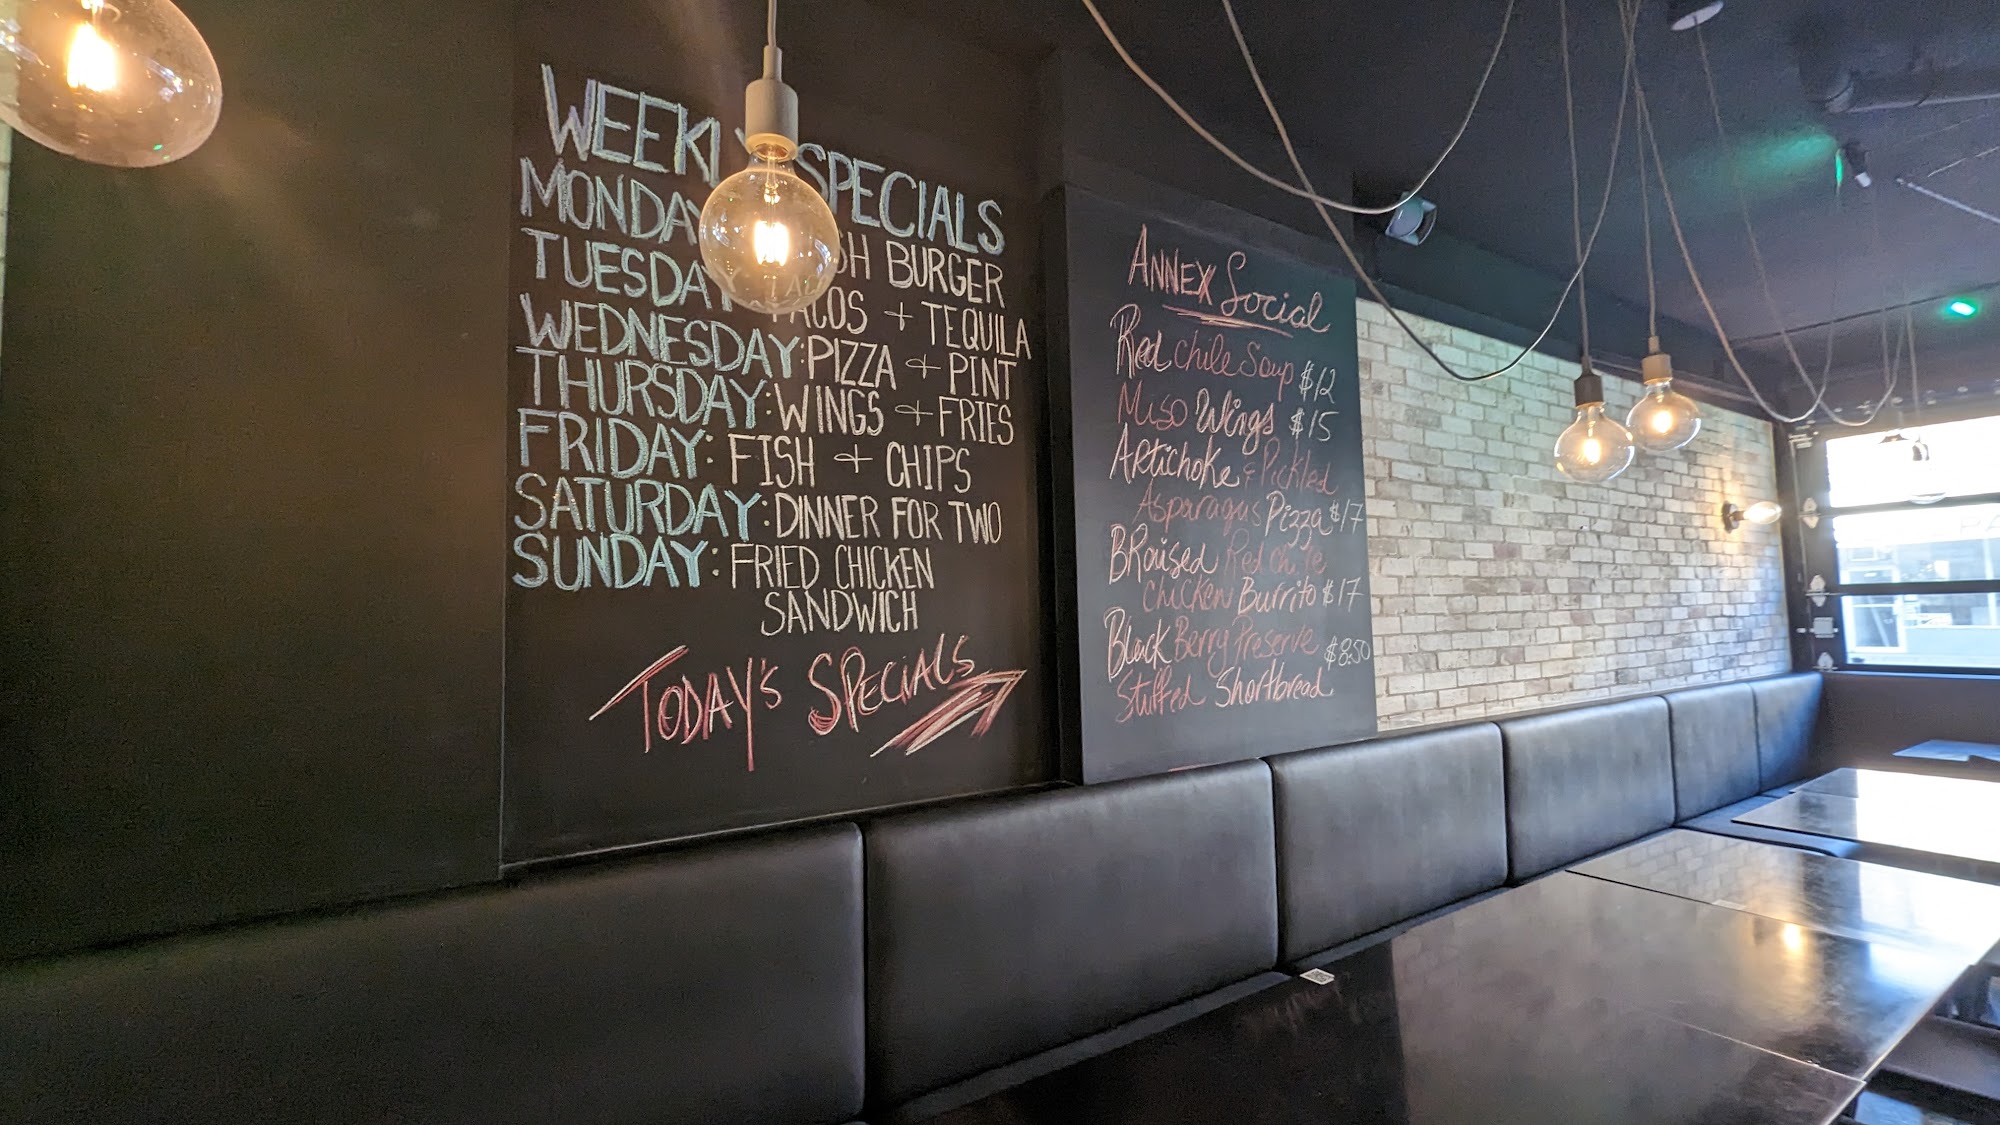 WEEKLY SPECIALS
MONDAY BURGER
TUESDAY TACOS + TEQUILA
WEDNESDAY: PIZZA + PINT
THURSDAY: WINGS + FRIES
FRIDAY: FISH + CHIPS
SATURDAY: DINNER FOR TWO
SUNDAY: FRIED CHICKEN
SANDWICH
TODAY'S SPECIALS
ANNEX Social
Red chile Soup $12
Miso Wings $15
Artichoke & Pickled
Asparagus Pizza $17
BRaised Red chile
chicken Burrito $17
Black Berry Preserve
$8.50
Stuffed Shortbread